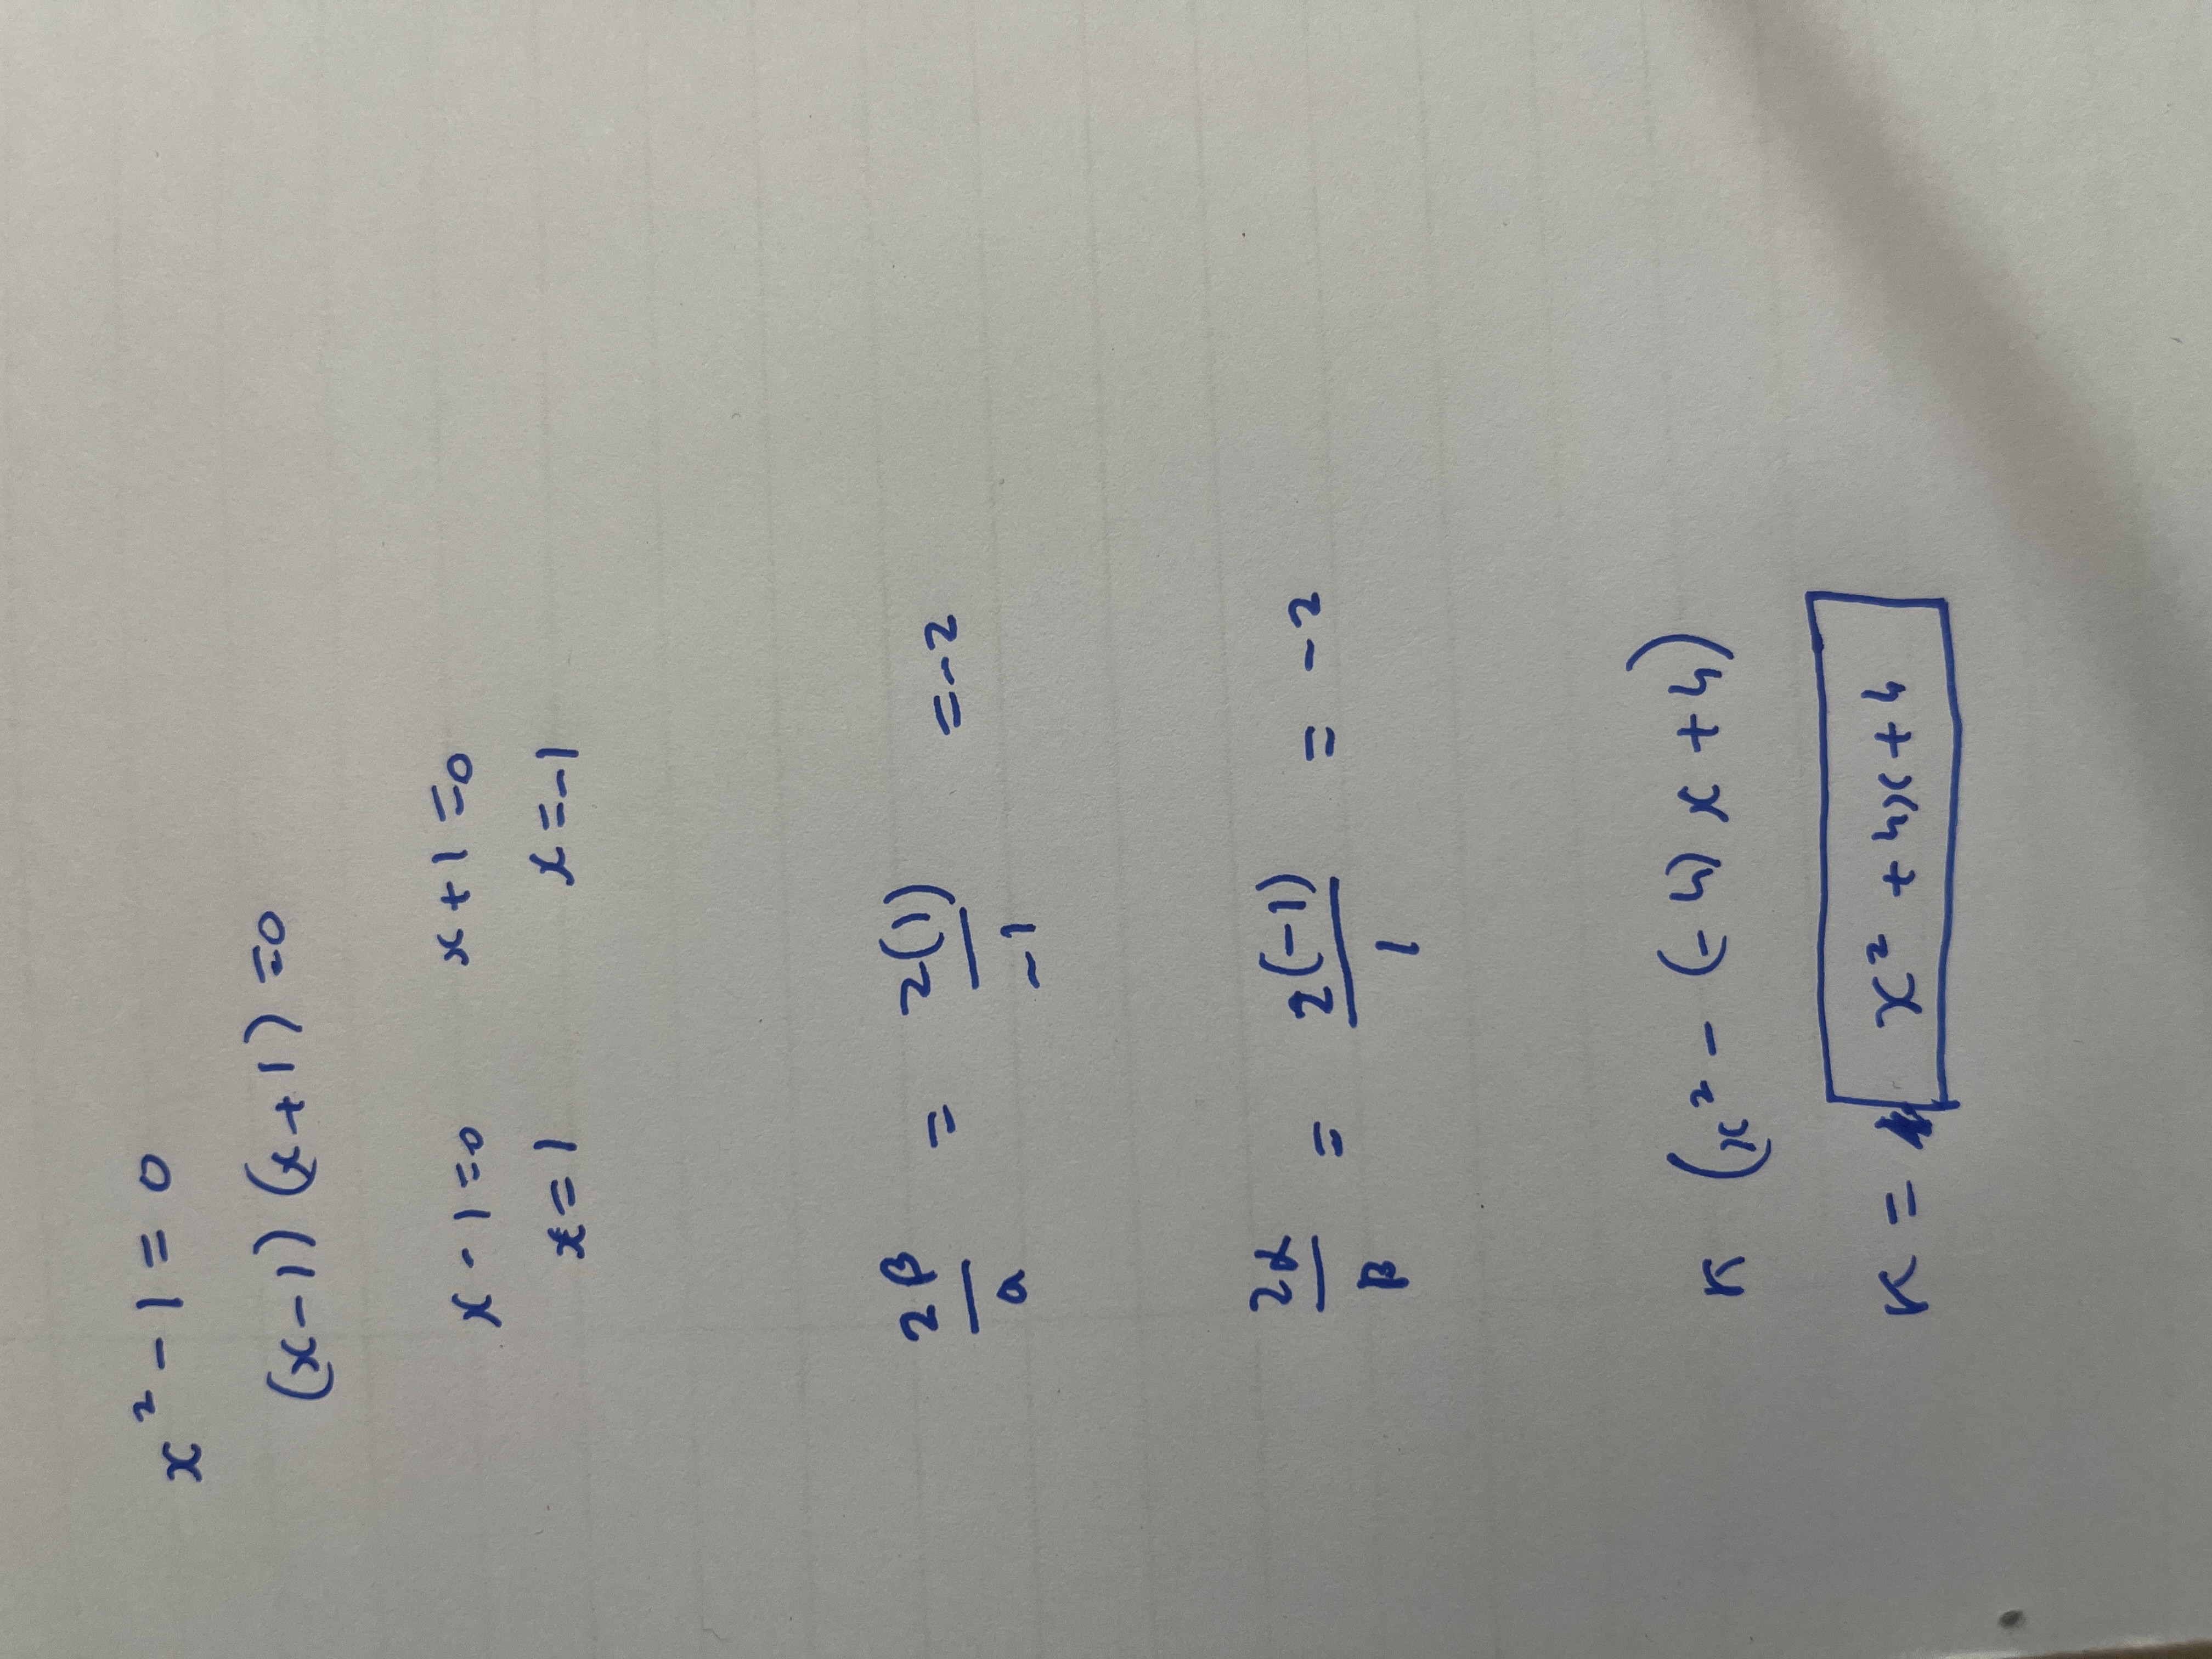 x² - 1 = 0
(x-1) (x+1) =0
x - 1 =0 x + 1 =0
x = 1 x = -1
2β/α = 2(1)/-1 = -2
2α/β = 2(-1)/1 = -2
K (x² - (-4) x + 4)
K = x² + 4x + 4